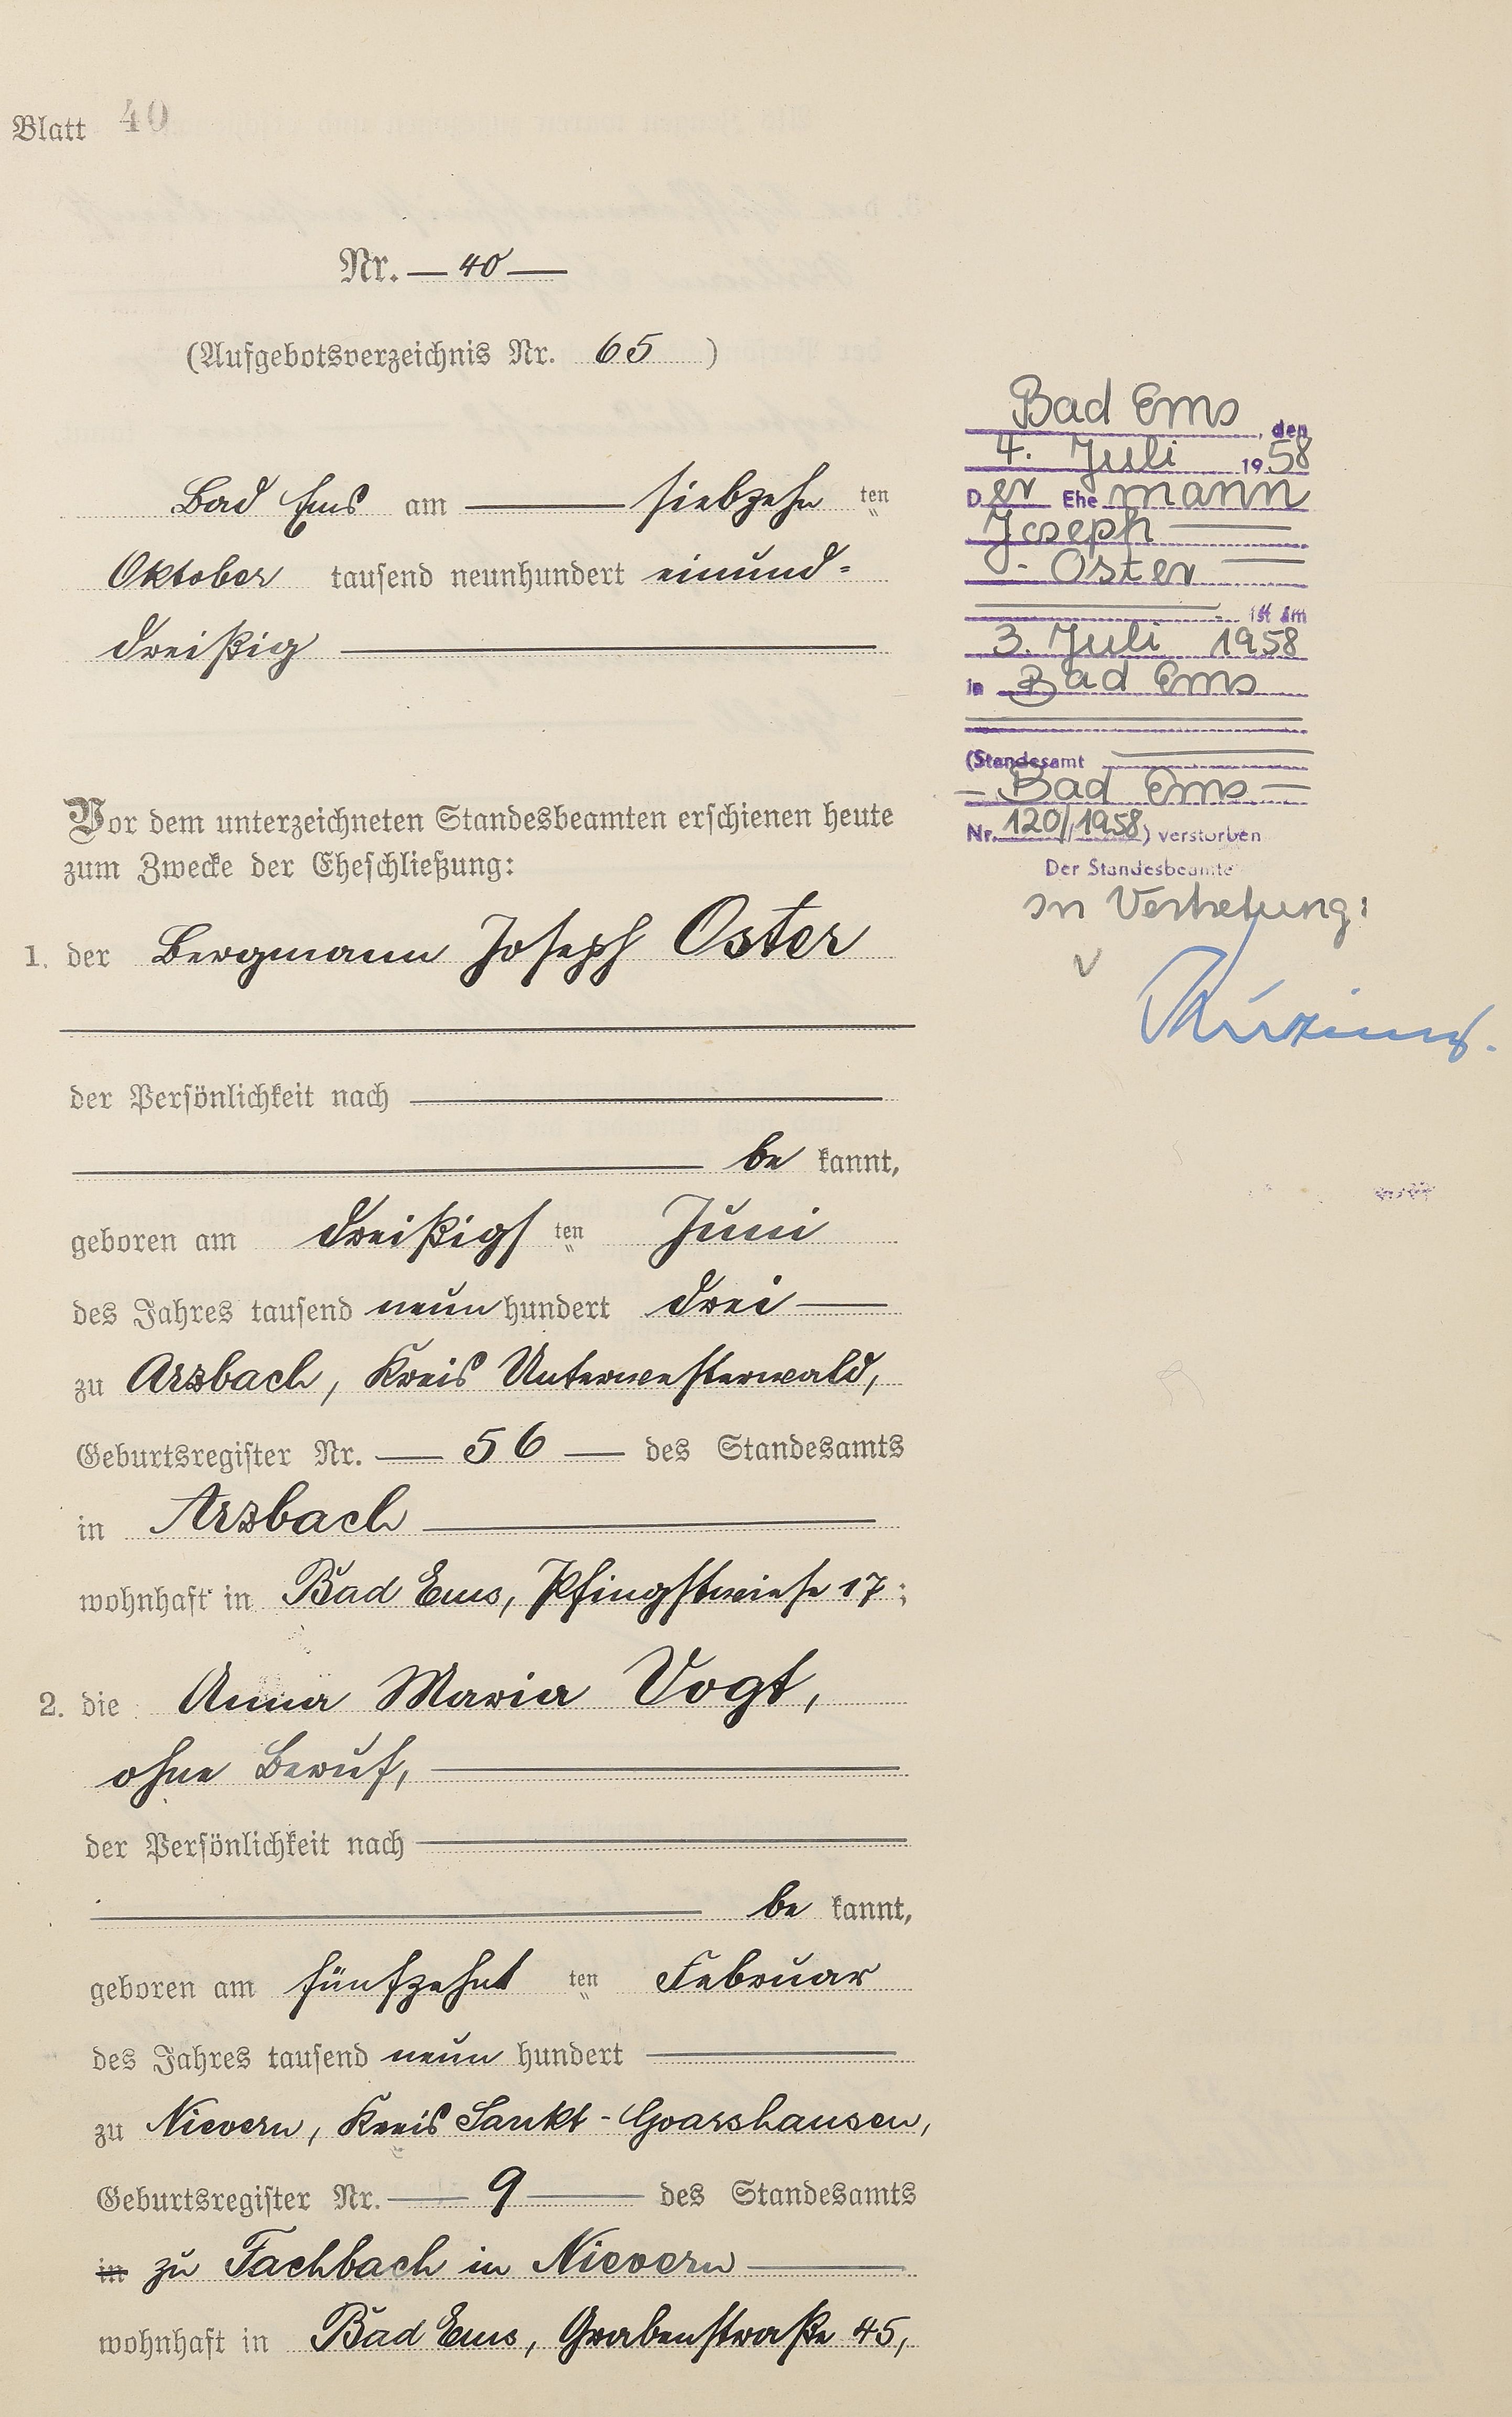 Blatt 40
Nr. — 40 —
(Aufgebotsverzeichnis Nr. 65 )
Bad Ems am — siebzehn ten
Oktober tausend neunhundert einund-
dreißig —
Vor dem unterzeichneten Standesbeamten erschienen heute
zum Zwecke der Eheschließung:
1. der Bergmann Joseph Oster
der Persönlichkeit nach —
— be kannt,
geboren am dreißigs ten Juni
des Jahres tausend neun hundert drei —
zu Arzbach, Kreis Unterwesterwald,
Geburtsregister Nr. — 56 — des Standesamts
in Arzbach —
wohnhaft in Bad Ems, Pfingstwiese 17 ;
2. die Anna Maria Vogt,
ohne Beruf, —
der Persönlichkeit nach —
— be kannt,
geboren am fünfzehnt ten Februar
des Jahres tausend neun hundert —
zu Nievern, Kreis Sankt-Goarshausen,
Geburtsregister Nr. — 9 — des Standesamts
in zu Fachbach in Nievern —
wohnhaft in Bad Ems, Grabenstraße 45,
Bad Ems, den
4. Juli 1958
Der Ehemann
Joseph —
- Oster —
— ist am
3. Juli 1958
in Bad Ems
(Standesamt —
— Bad Ems —
Nr. 120/1958) verstorben
Der Standesbeamte
In Vertretung: